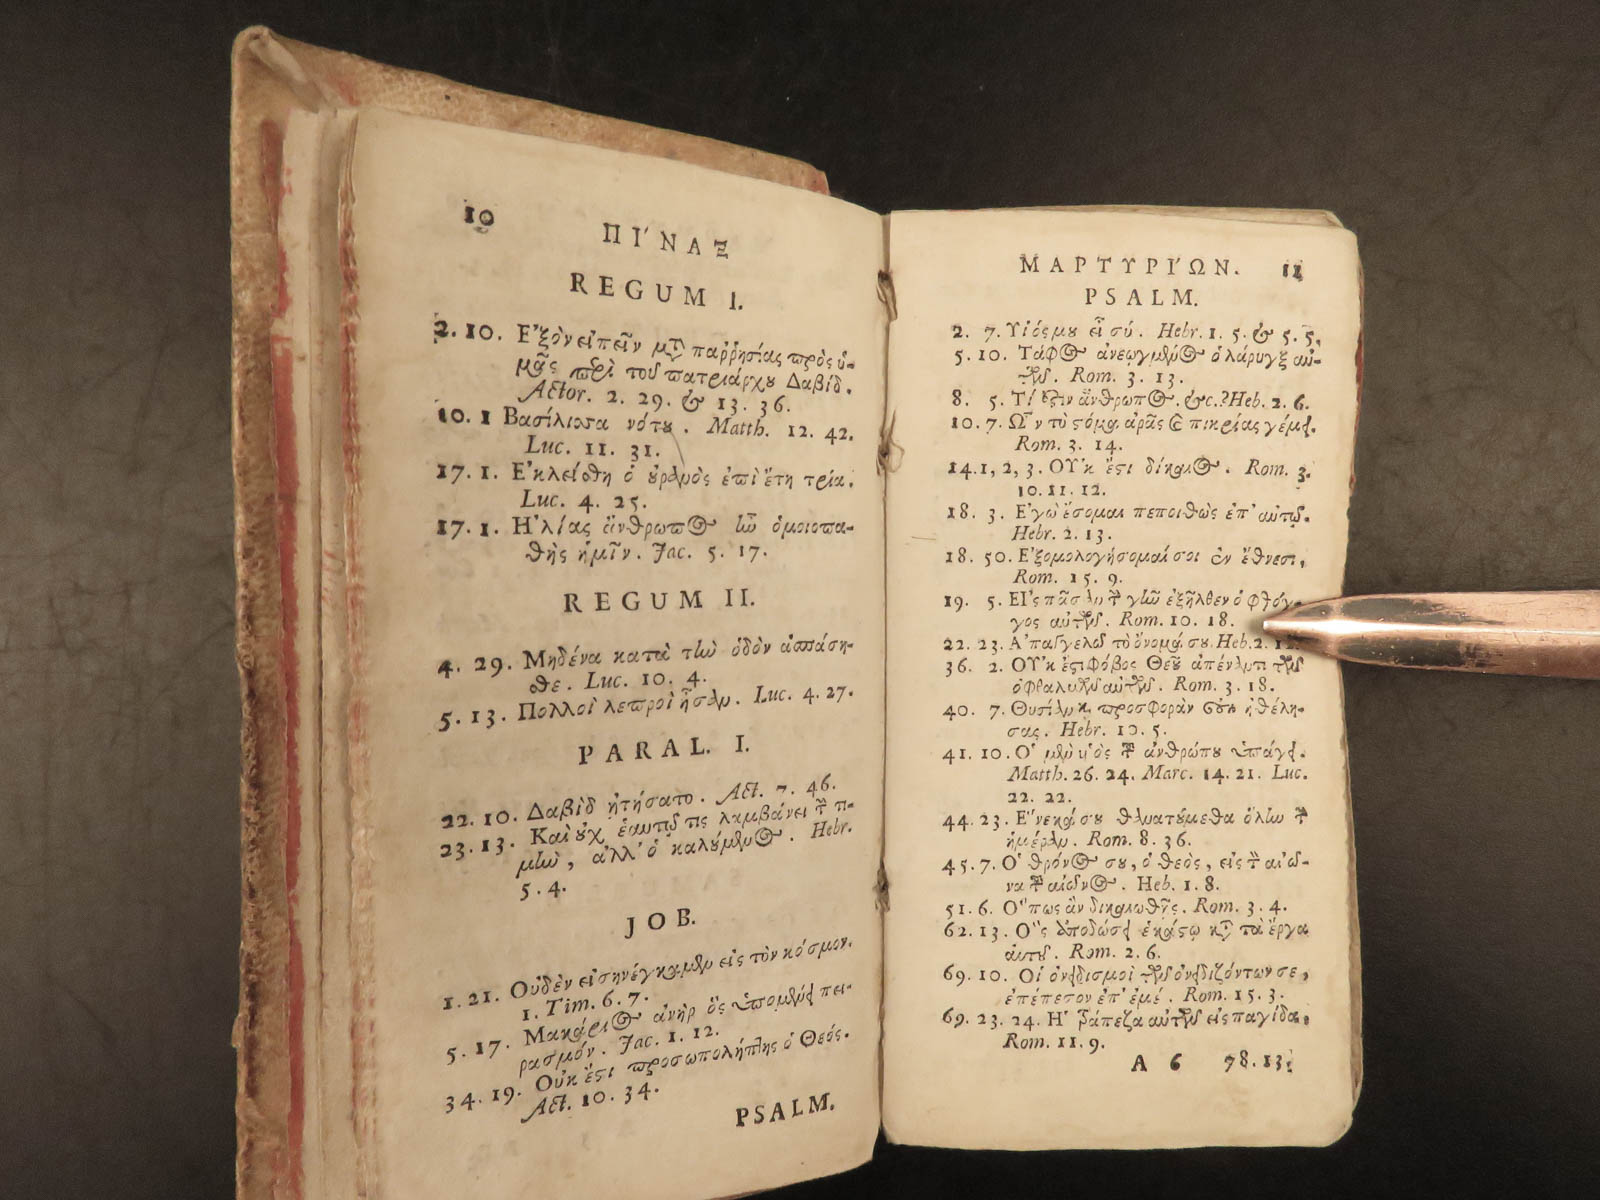 10
ΠΙ΄ΝΑΞ
REGUM I.
2. 10. Ε᾿ξὸν εἰπεῖν μτ̃ παῤῥησίας πρὸς ὑ-
μᾶς περὶ τοῦ πατριάρχου Δαβίδ.
Actor. 2. 29. & 13. 36.
10. 1 Βασίλισσα νότου. Matth. 12. 42.
Luc. 11. 31.
17. 1. Ε᾿κλείσθη ὁ οὐρανὸς ἐπὶ ἔτη τρία.
Luc. 4. 25.
17. 1. Η᾿λίας ἄνθρωπος ἦν ὁμοιοπα-
θὴς ἡμῖν. Jac. 5. 17.
REGUM II.
4. 29. Μηδένα κατὰ τὴν ὁδὸν ἀσπάση-
σθε. Luc. 10. 4.
5. 13. Πολλοὶ λεπροὶ ἦσαν. Luc. 4. 27.
PARAL. I.
22. 10. Δαβὶδ ᾐτήσατο. Act. 7. 46.
23. 13. Καὶ οὐχ ἑαυτῷ τις λαμβάνει τὴν τι-
μὴν, ἀλλ᾿ ὁ καλούμενος. Hebr.
5. 4.
JOB.
1. 21. Οὐδὲν εἰσηνέγκαμεν εἰς τὸν κόσμον.
1. Tim. 6. 7.
5. 17. Μακάριος ἀνὴρ ὃς ὑπομένει πει-
ρασμόν. Jac. 1. 12.
34. 19. Οὐκ ἔστι προσωπολήπτης ὁ Θεός.
Act. 10. 34.
PSALM.
ΜΑΡΤΥΡΙ΄ΩΝ. 11
PSALM.
2. 7. Υἱός μου εἶ σύ. Hebr. 1. 5. & 5. 5.
5. 10. Τάφος ἀνεῳγμένος ὁ λάρυγξ αὐ-
τῶν. Rom. 3. 13.
8. 5. Τί ἐστιν ἄνθρωπος. &c.? Heb. 2. 6.
10. 7. Ω῟ν τὸ στόμα ἀρᾶς καὶ πικρίας γέμει.
Rom. 3. 14.
14. 1, 2, 3. ΟΥ᾿κ ἔστι δίκαιος. Rom. 3.
10. 11. 12.
18. 3. Ε᾿γὼ ἔσομαι πεποιθὼς ἐπ᾿ αὐτῷ.
Hebr. 2. 13.
18. 50. Ε᾿ξομολογήσομαί σοι ἐν ἔθνεσι,
Rom. 15. 9.
19. 5. ΕΙ᾿ς πᾶσαν τὴν γῆν ἐξῆλθεν ὁ φθόγ-
γος αὐτῶν. Rom. 10. 18.
22. 23. Α᾿παγγελῶ τὸ ὄνομά σου. Heb. 2. 12.
36. 2. ΟΥ᾿κ ἔστι φόβος Θεοῦ ἀπέναντι τῶν
ὀφθαλμῶν αὐτῶν. Rom. 3. 18.
40. 7. Θυσίαν καὶ προσφορὰν οὐκ ἠθέλη-
σας. Hebr. 10. 5.
41. 10. Ο῾ μὲν υἱὸς τοῦ ἀνθρώπου ὑπάγει.
Matth. 26. 24. Marc. 14. 21. Luc.
22. 22.
44. 23. Ε῞νεκά σου θανατούμεθα ὅλην τὴν
ἡμέραν. Rom. 8. 36.
45. 7. Ο῾ θρόνος σου, ὁ θεὸς, εἰς τὸν αἰῶ-
να τοῦ αἰῶνος. Heb. 1. 8.
51. 6. Ο῞πως ἂν δικαιωθῇς. Rom. 3. 4.
62. 13. Ο῝ς ἀποδώσει ἑκάστῳ κατὰ τὰ ἔργα
αὐτοῦ. Rom. 2. 6.
69. 10. Οἱ ὀνειδισμοὶ τῶν ὀνειδιζόντων σε,
ἐπέπεσον ἐπ᾿ ἐμέ. Rom. 15. 3.
69. 23. 24. Η῾ τράπεζα αὐτῶν εἰς παγίδα.
Rom. 11. 9.
A 6 78. 13.